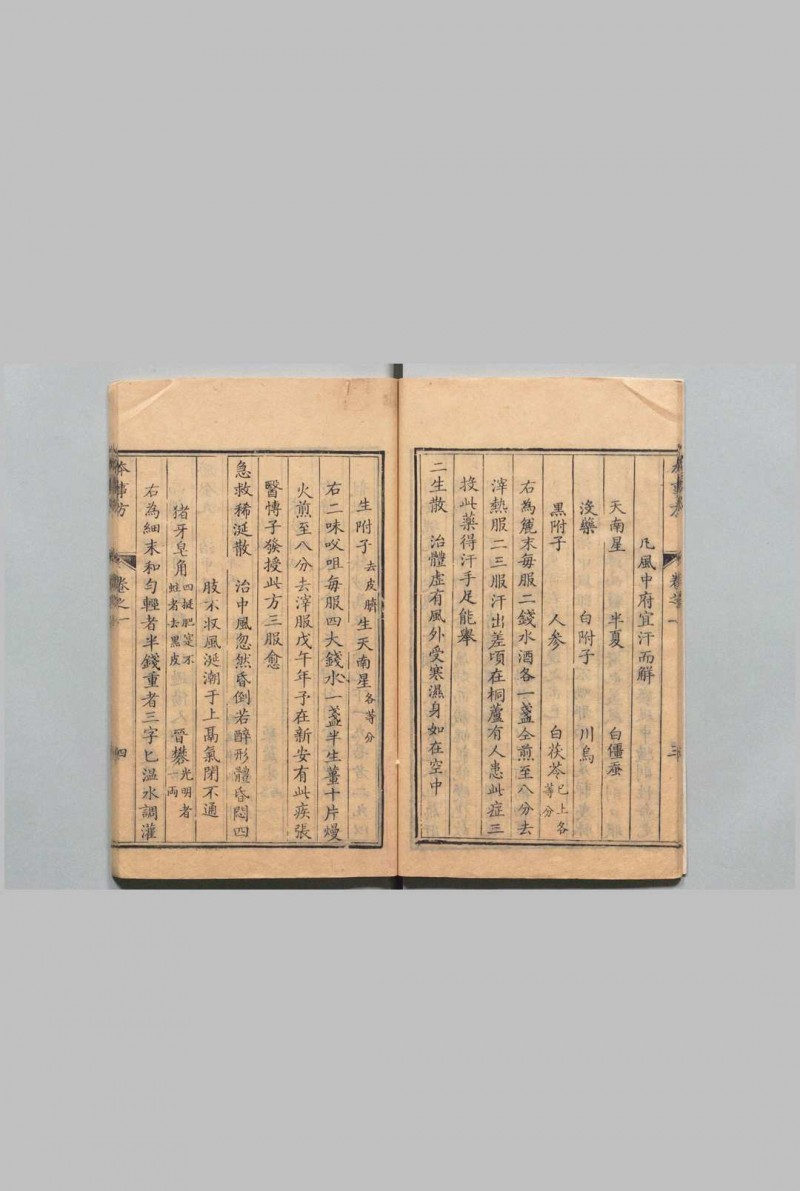 本事方 卷之一 三
凡風中府宜汗而解
天南星 半夏 白僵蚕
没藥 白附子 川烏
黑附子 人参 白茯苓已上各等分
右為麄末每服二錢水酒各一盞仝煎至八分去
滓熱服二三服汗出差頃在桐蘆有人患此症三
投此藥得汗手足能舉
二生散 治體虚有風外受寒濕身如在空中
生附子去皮臍 生天南星各等分
右二味㕮咀每服四大錢水一盞半生薑十片熳
火煎至八分去滓服戊午年予在新安有此疾張
醫愽子發授此方三服愈
急救稀涎散 治中風忽然昏倒若醉形體昏悶四
肢不収風涎潮于上髙氣閉不通
猪牙皂角四挺肥寔不蛀者去黑皮 晉礬光明者一両
右為細末和匀輕者半錢重者三字匕温水調灌
本事方 卷之一 四